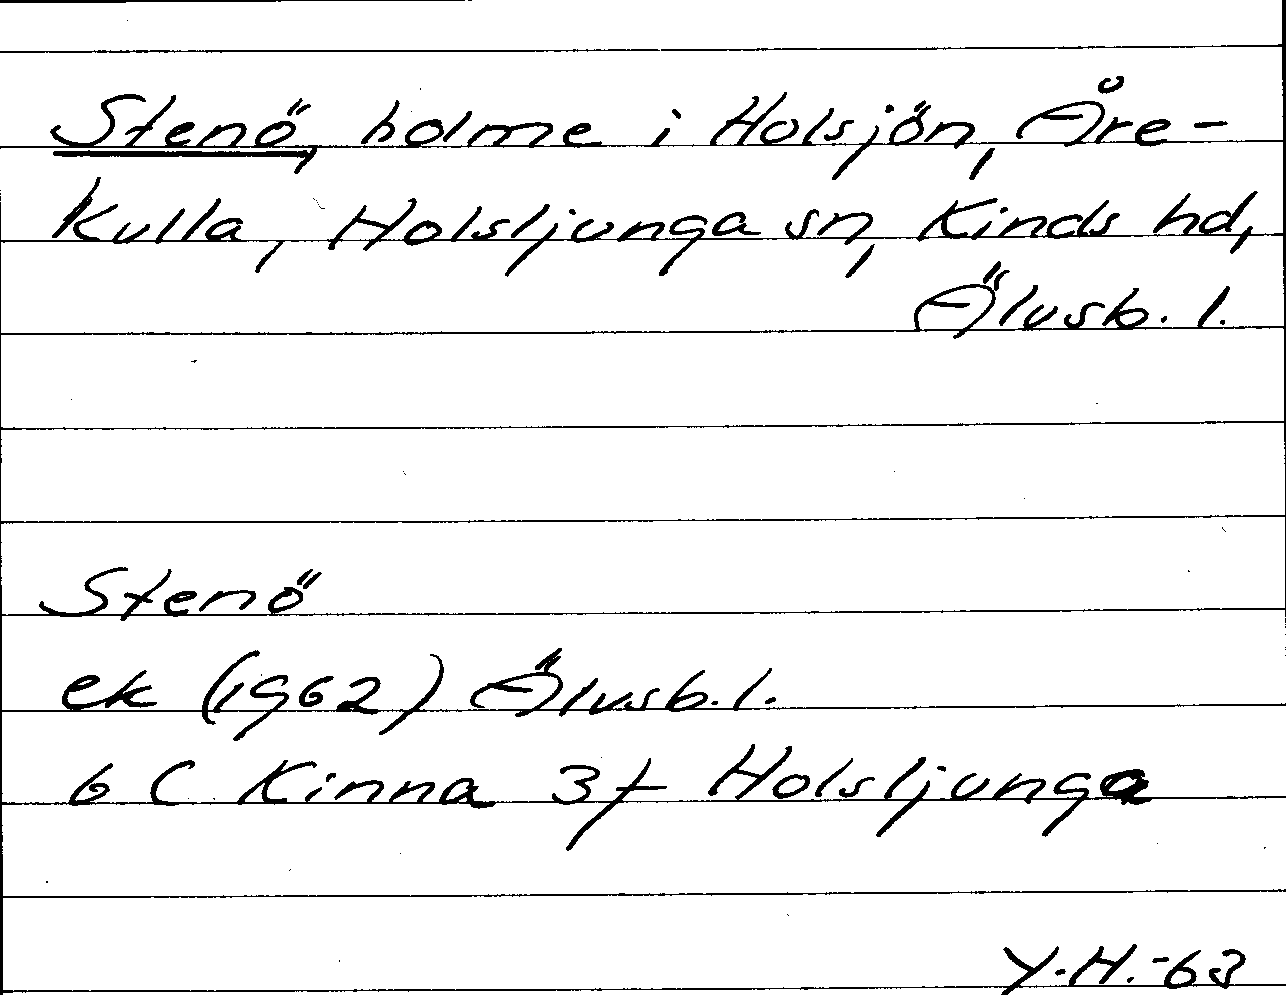 Stenö, holme i Holsjön, Åre-
kulla, Holsljunga sn, Kinds hd,
Älvsb. l.
Stenö
ek (1962) Älvsb. l.
6 C Kinna 3f Holsljunga
Y.H.-63